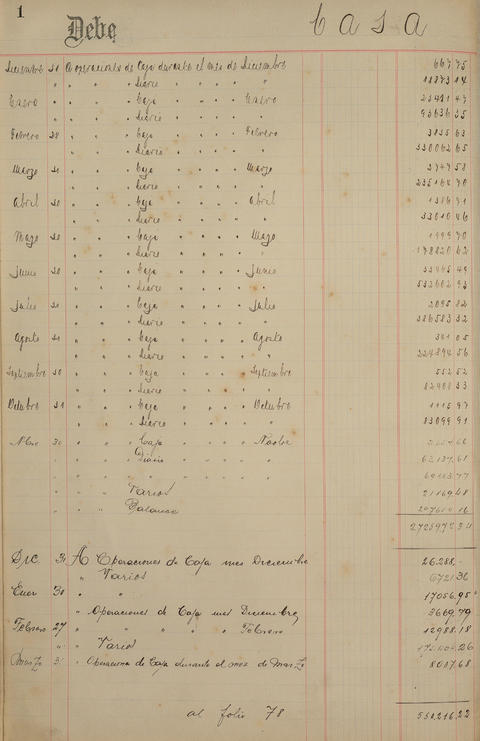 1
Debe
CASA
Diciembre 31 A operaciones de Caja durante el mes de Diciembre 667,75
" " " " Diario " " " " 18873 14
Enero " " " " Caja " " " Enero
" " " Diario " " " " 93636 35
Febrero 28 " " " Caja " " " Febrero 3035 63
" " " Diario " " " " 330062 65
Marzo 31 " " " Caja " " " Marzo
" " " Diario " " " " 235164 70
Abril 30 " " " Caja " " " Abril
" " " Diario " " " " 33010 46
Mayo 31 " " " Caja " " " Mayo 1999 70
" " " Diario " " " " 178820 62
Junio 30 " " " Caja " " " Junio
" " " Diario " " " " 532602 93
Julio 31 " " " Caja " " " Julio 2095 82
" " " Diario " " " " 386583 32
Agosto 31 " " " Caja " " " Agosto 381 05
" " " Diario " " " " 224894 56
Septiembre 30 " " " Caja " " " Septiembre 552 52
" " " Diario " " " " 82908 33
Octubre 31 " " " Caja " " " Octubre 1115 97
" " " Diario " " " " 83099 91
Nbre 30 " " " Caja " " "
" " " " Diario " " " " 62137,68
" " " " " " " " "
" " " " Varios 21169,48
" " " " Balance
Dic. 31 A Operaciones de Caja mes Diciembre 26.288,-
" Varios 6721 36
Ener 30 " " 17056,95
" Operaciones de Caja mes Diciembre 3669,79
Febrero 27 " " " " " Febrero 12988.18
" " " Varios
Marzo 31 " Operaciones de Caja durante el mes de Marzo 8007,68
al folio 78 550,216,22